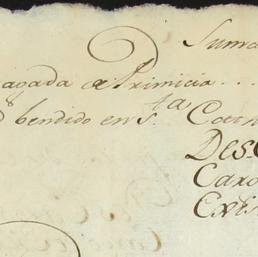 Suma
agada a Primicia . . .
bendido en S.ta Ca
Des
Caxo
Exis